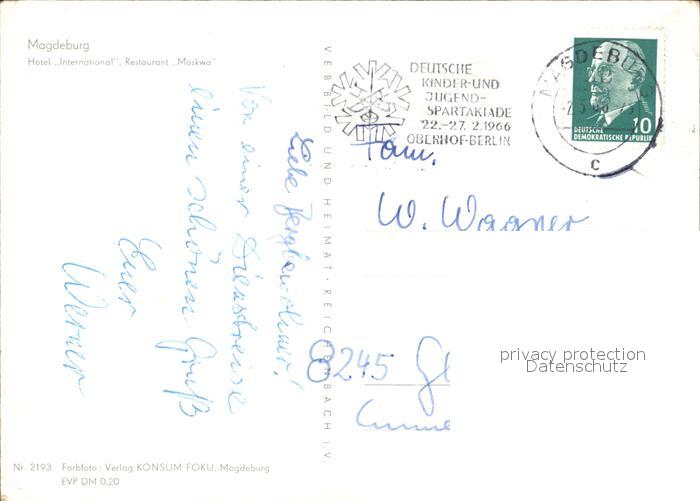 Magdeburg
Hotel „International“, Restaurant „Moskwa“
Liebe Bergbewohner!
Von einer Dienstreise
einen schönen Gruß
Euer
Werner
VEB BILD UND HEIMAT · REICHENBACH I. V.
DEUTSCHE
KINDER-UND
JUGEND-
SPARTAKIADE
22.-27. 2.1966
OBERHOF-BERLIN
MAGDEBURG
C
10
DEUTSCHE
DEMOKRATISCHE REPUBLIK
Fam.
W. Wagner
8245 Gl
privacy protection
Datenschutz
Nr. 2193 Farbfoto: Verlag KONSUM FOKU, Magdeburg
EVP DM 0,20